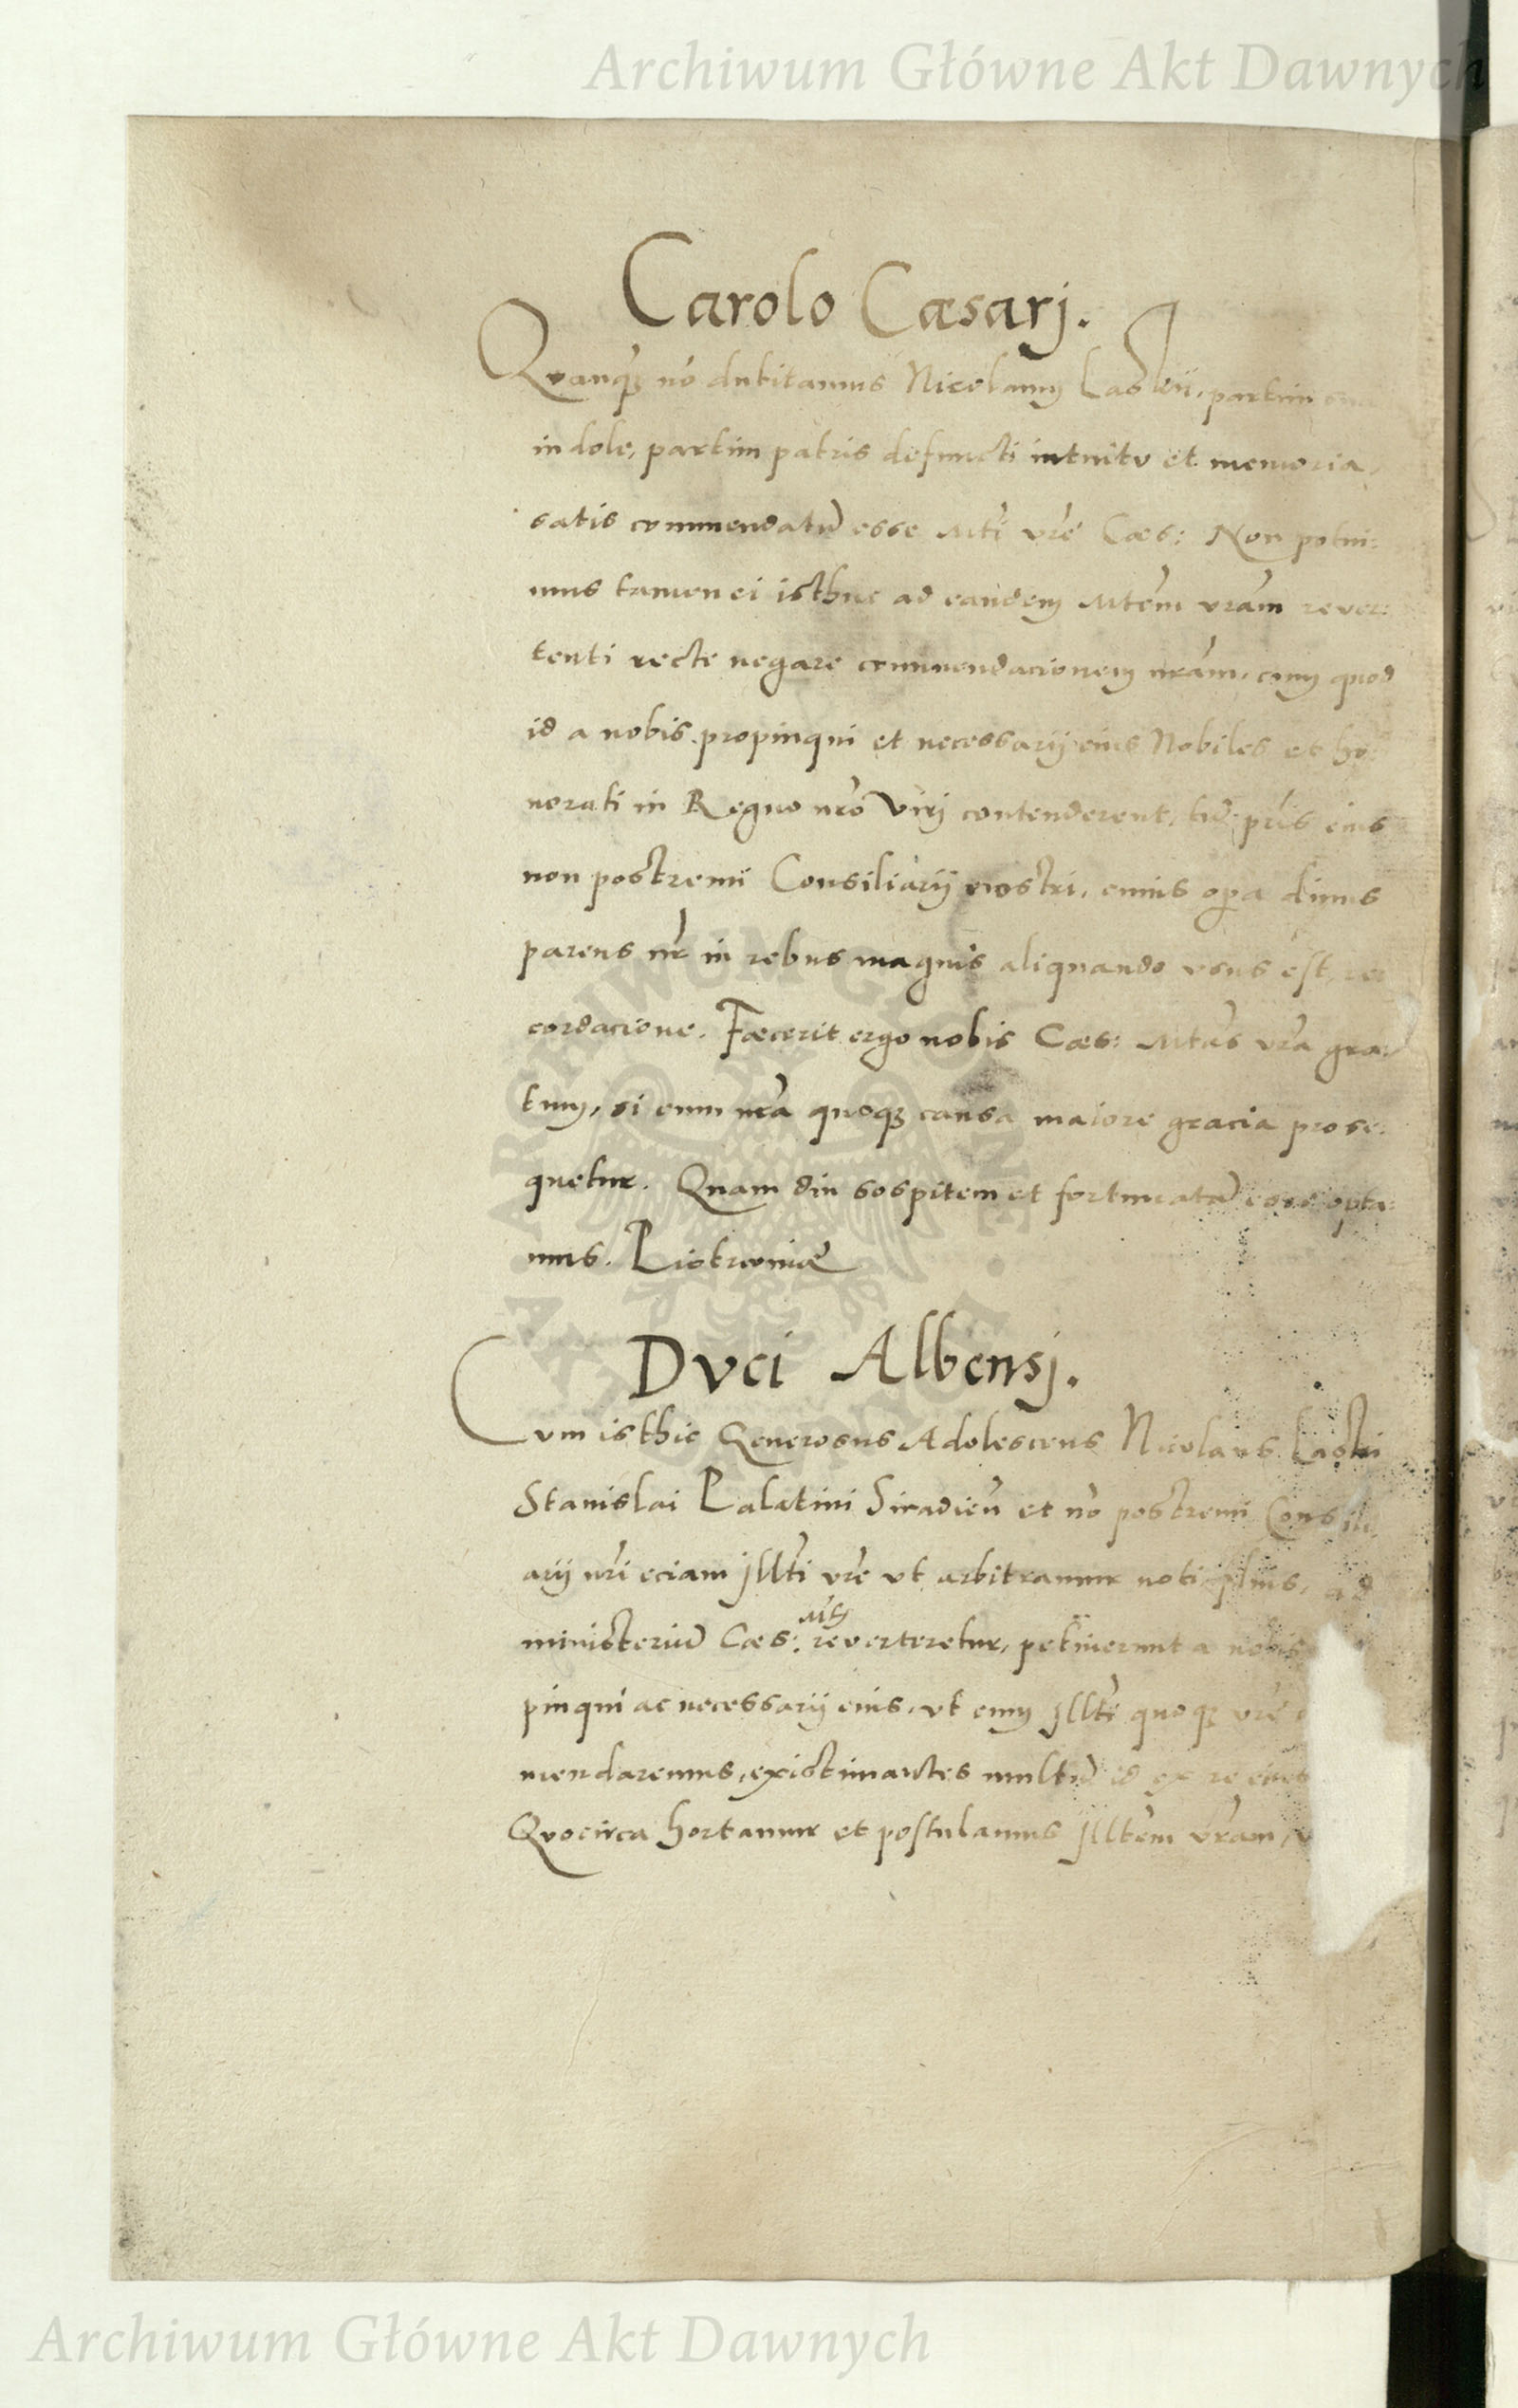 Archiwum Główne Akt Dawnych
Carolo Cæsarj.
Quanq̃ nõ dubitamus Nicolaum Laskii, partim sua
indole, partim patris defuncti intuitu et memoria,
satis commendatũ esse Mti vrẽ Cæs: Non potui:
mus tamen ei isthuc ad eandem Mtem vrãm rever:
tenti recte negare commendacionem nrãm, cum quod
id a nobis propinqui et necessarij eius Nobiles et ho:
norati in Regno nrõ Virj contenderent, tũ pris eius
non postremi Consiliarij nostri, cuius opa diuus
parens nr̃ in rebus magnis aliquando vsus est, re:
cordacione. Fæcerit ergo nobis Cæs: Mtas vrã gra:
tum, si eum nrã quoq3 causa maiore gracia prose:
quetur. Quam diu sospitem et fortunatã esse opta:
mus. Piotrconiæ
Dvci Albensj.
Cvm isthic Generosus Adolescens Nicolaus Laski
Stanislai Palatini Siradieñ et nõ postremi Consili
arij nrĩ eciam Jllti vrẽ vt arbitramur noti filius, ad
ministeriũ Cæs: Mtis reverteretur, petiuerunt a nobis
pinqui ac necessarij eius, vt eum Jllti quoq3 vrẽ
mendaremus, existimantes multũ id ex re eius
Quocirca hortamur et postulamus Jlltem vrãm,
Archiwum Główne Akt Dawnych